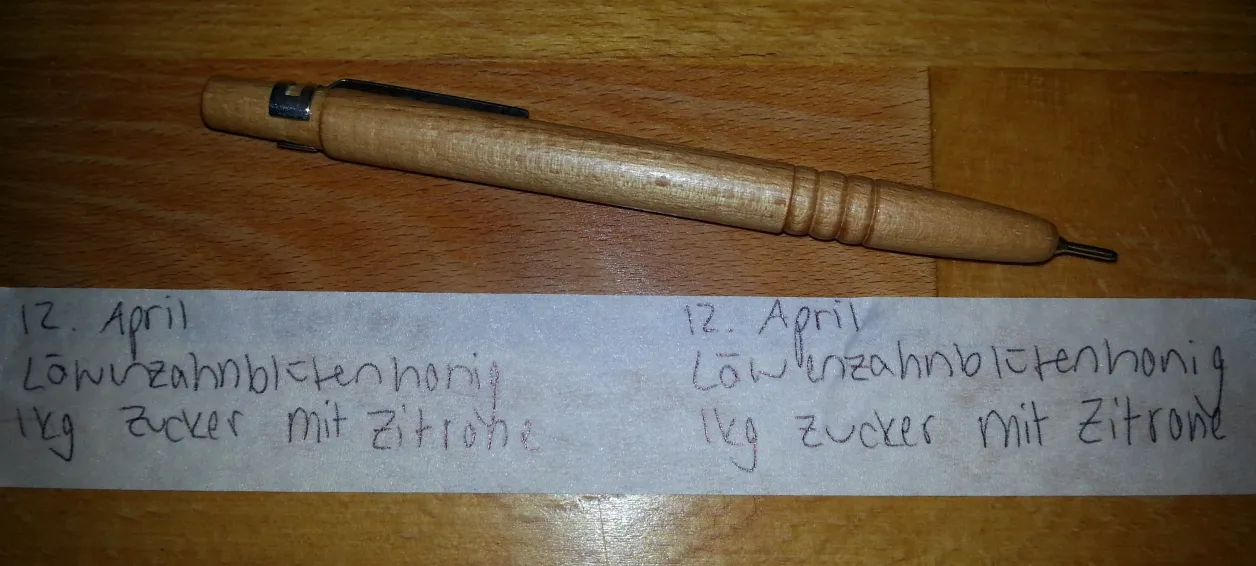 12. April
Löwenzahnblütenhonig
1kg Zucker mit Zitrone
12. April
Löwenzahnblütenhonig
1kg Zucker mit Zitrone